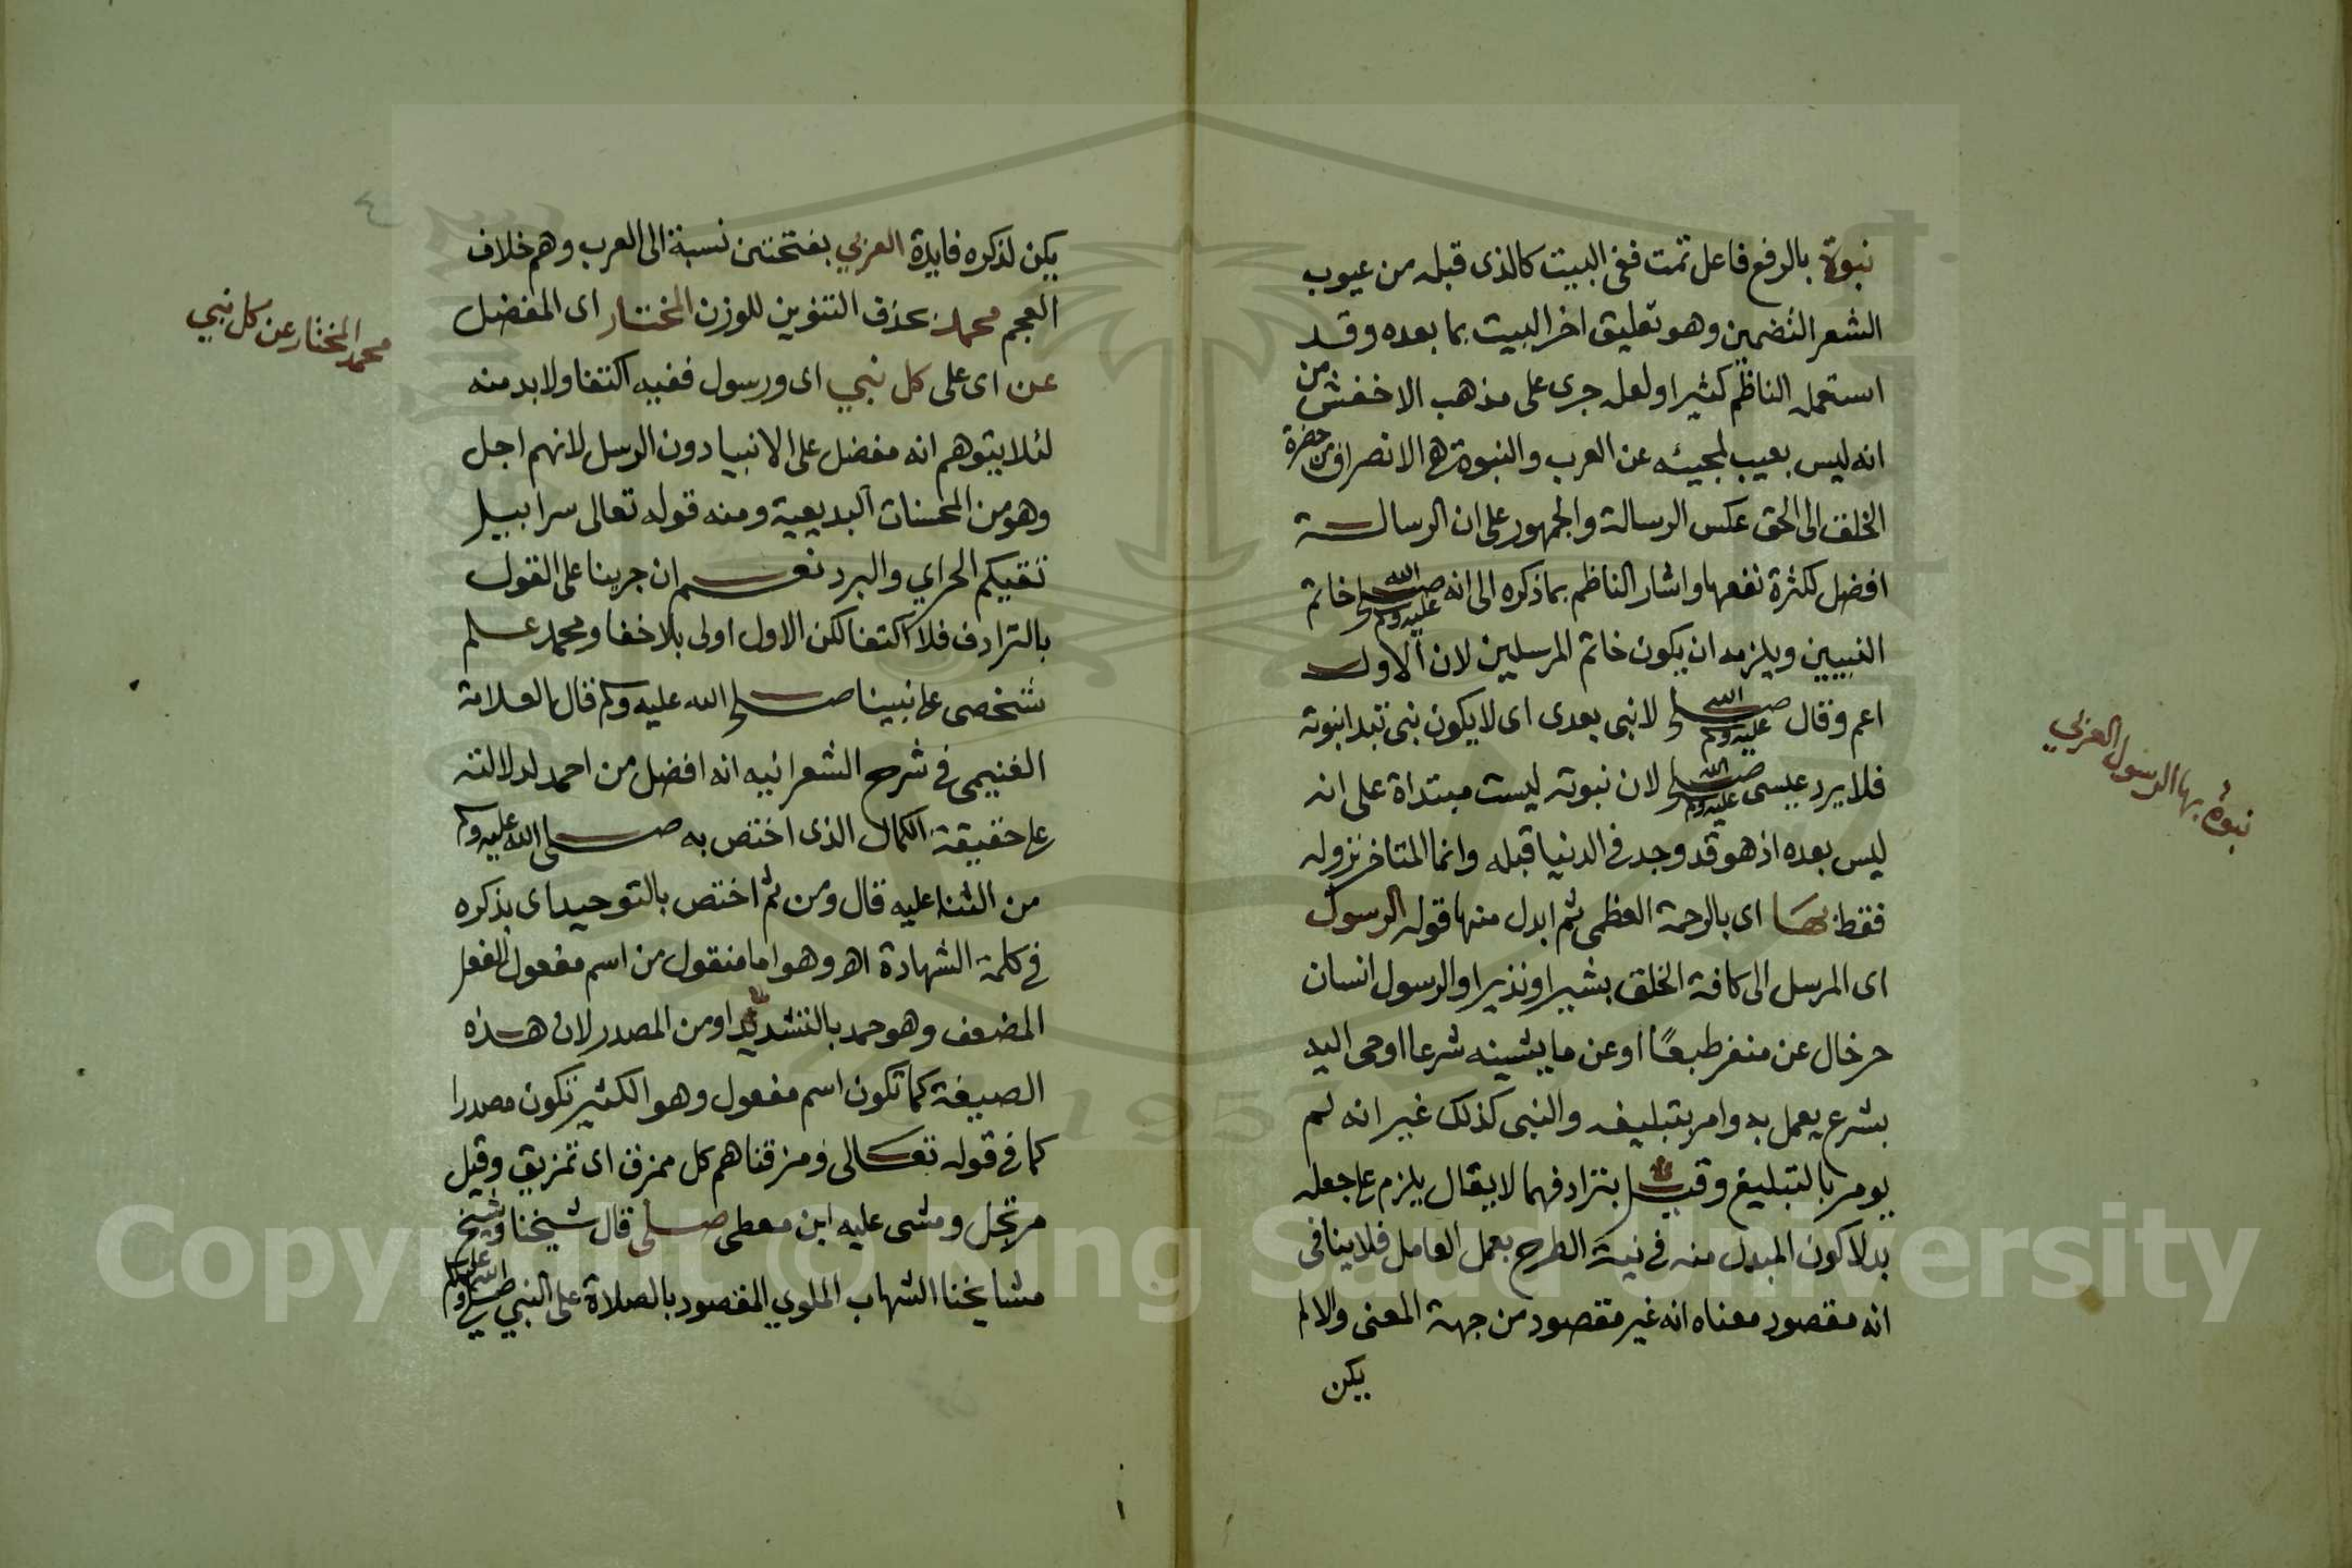 نبوة بالرفع فاعل تمت ففي البيت كالذي قبله من عيوب
الشعر التضمين وهو تعليق اخر البيت بما بعده وقد
استعمله الناظم كثيرا ولعله جرى على مذهب الاخفش من
انه ليس بعيب لمجيئه عن العرب والنبوة هي الانصراف من حضرة
الخلق الى الحق عكس الرسالة والجمهور على ان الرسالة
افضل لكثرة نفعها واشار الناظم بما ذكره الى انه صلى الله عليه وسلم خاتم
النبيين ويلزمه ان يكون خاتم المرسلين لان الاول
اعم وقال صلى الله عليه وسلم لا نبي بعدي اى لا يكون نبي تبدا نبوته
فلا يرد عيسى صلى الله عليه وسلم لان نبوته ليست مبتداة على انه
ليس بعده اذ هو قد وجد في الدنيا قبله وانما المتاخر نزوله
فقط بها اى بالرحمة العظمى ثم ابدل منها قوله الرسول
اى المرسل الى كافة الخلق بشيرا ونذيرا والرسول انسان
حر خال عن منفر طبعًا او عن ما يشينه شرعا اوحى اليه
بشرع يعمل به وامر بتبليغه والنبي كذلك غير انه لم
يومر بالتبليغ وقيل بترادفهما لا يقال يلزم على جعله
بدلا كون المبدل منه في نية الطرح بعمل العامل فلا ينافى
انه مقصود معناه انه غير مقصود من جهة المعنى والا لم
يكن
نبوة بها الرسول العربي
يكن لذكره فايدة العربي بفتحتين نسبة الى العرب وهم خلاف
العجم محمد بحذف التنوين للوزن المختار اى المفضل
عن اى على كل نبي اى ورسول ففيه اكتفا ولابد منه
لئلا يتوهم انه مفضل على الانبيا دون الرسل لانهم اجل
وهو من المحسنات البديعية ومنه قوله تعالى سرابيل
تقيكم الحر اي والبرد نعم ان جرينا على القول
بالترادف فلا اكتفا لكن الاول اولى بلا خفا ومحمد علم
شخصى على نبينا صلى الله عليه وسلم قال العلامة
الغنيمي في شرح الشعرانيه انه افضل من احمد لدلالته
على حقيقة الكمال الذى اختص به صلى الله عليه وسلم
من الثنا عليه قال ومن ثم اختص بالتوحيد اى بذكره
في كلمة الشهادة اهـ وهو اما منقول من اسم مفعول الفعل
المضعف وهو حمد بالتشديد او من المصدر لان هذه
الصيغة كما تكون اسم مفعول وهو الكثير تكون مصدرا
كما في قوله تعالى ومزقناهم كل ممزق اى تمزيق وقيل
مرتجل ومشى عليه ابن معطى صلى قال شيخنا وشيخ
مشايخنا الشهاب الملوي المقصود بالصلاة على النبي صلى الله عليه وسلم
محمد المختار عن كل نبي
Copyright © King Saud University
1957